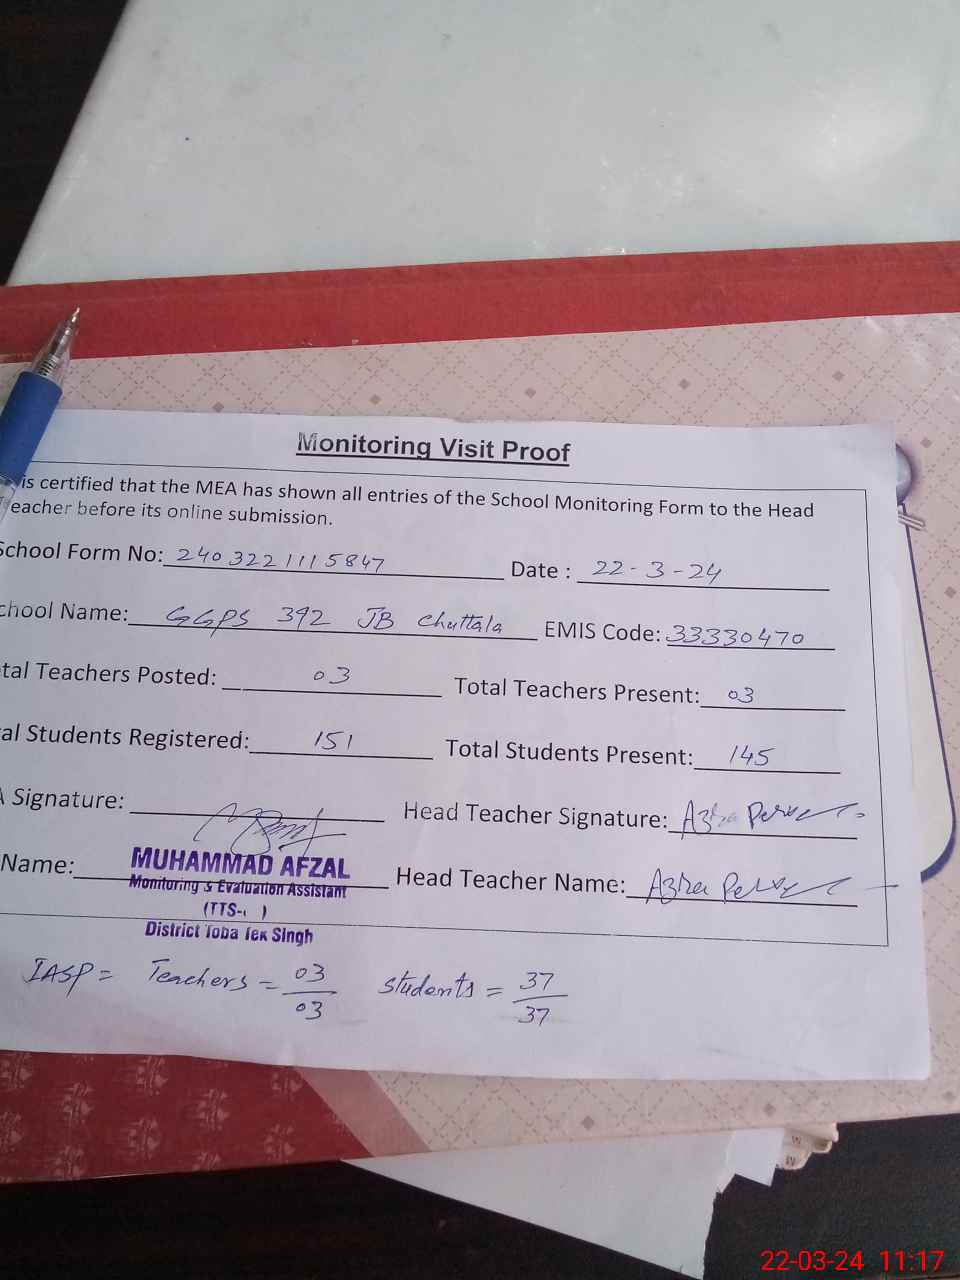 Monitoring Visit Proof
is certified that the MEA has shown all entries of the School Monitoring Form to the Head
eacher before its online submission.
School Form No: 2403221115847 Date : 22-3-24
chool Name: GGPS 392 JB Chuttala EMIS Code: 33330470
tal Teachers Posted: 03 Total Teachers Present: 03
al Students Registered: 151 Total Students Present: 145
A Signature: Head Teacher Signature: Azra
Name: Head Teacher Name: Azra
MUHAMMAD AFZAL
Monitoring & Evaluation Assistant
(TTS- )
District Toba Tek Singh
IASP = Teachers = 03/03 students = 37/37
22-03-24 11:17